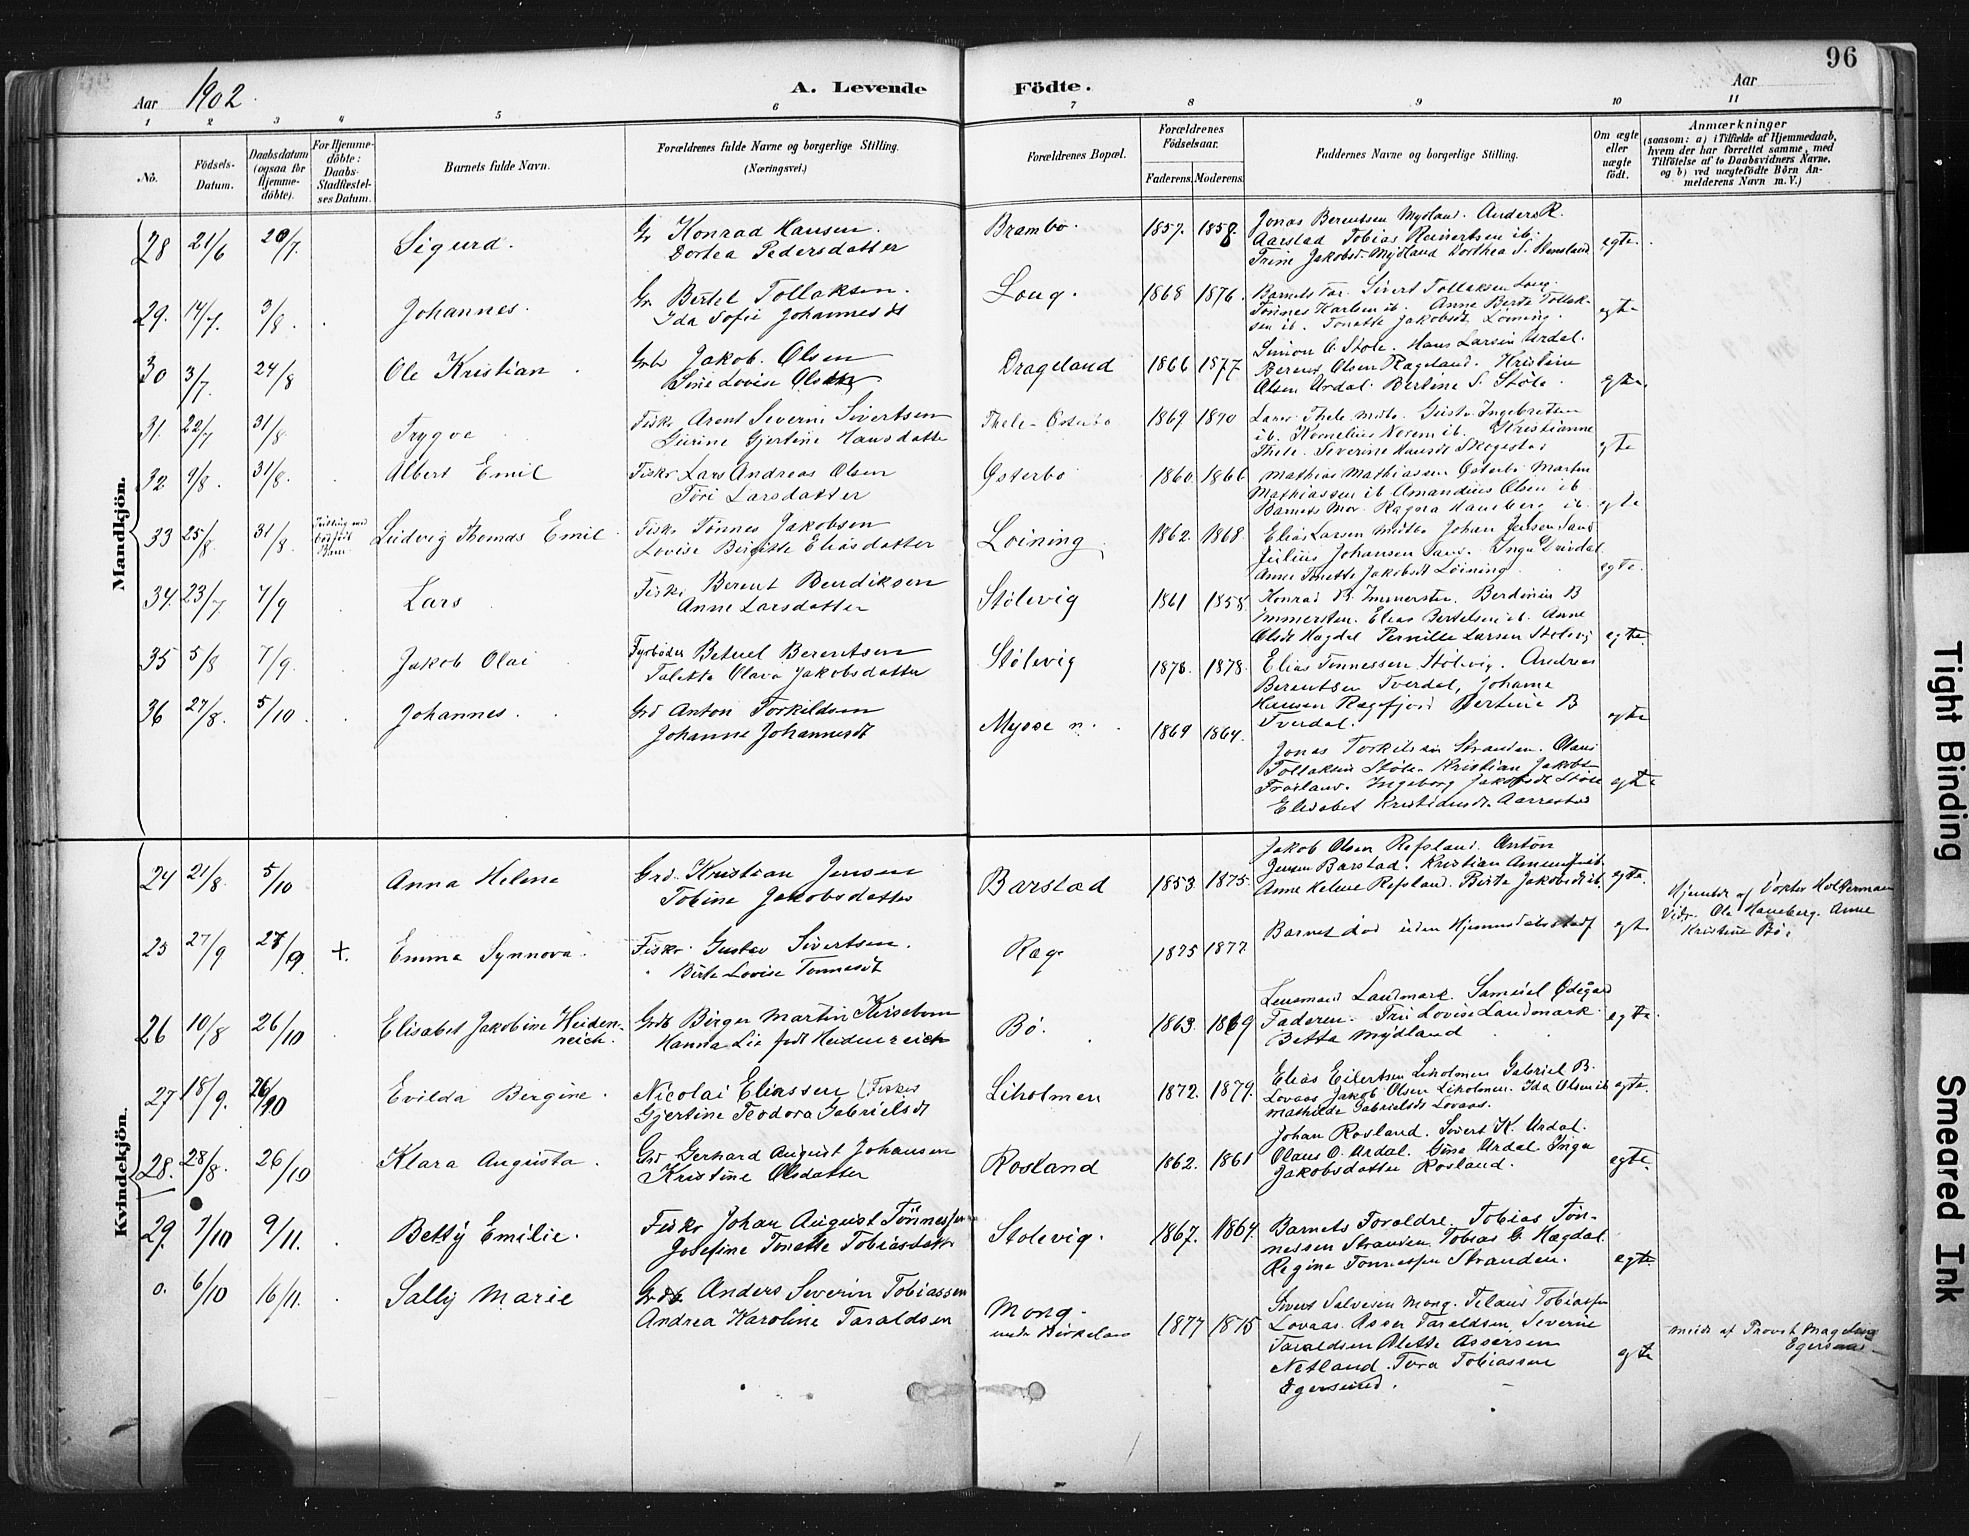 96
Aar 1902.
A. Levende Födte.
Aar
1 2 3 4 5 6 7 8 9 10 11
No.
Födsels-Datum.
Daabsdatum (ogsaa for Hjemme-döbte).
For Hjemme-döbte: Daabs-Stadfæstel-ses Datum.
Barnets fulde Navn.
Forældrenes fulde Navne og borgerlige Stilling.
(Næringsvei.)
Forældrenes Bopæl.
Forældrenes Födselsaar.
Faderens. Moderens.
Faddernes Navne og borgerlige Stilling.
Om ægte eller uægte födt.
Anmærkninger
(saasom: a) i Tilfælde af Hjemmedaab,
hvem der har forrettet samme, med
Tilföielse af to Daabsvidners Navne,
og b) ved uægtefödte Börn An-
melderens Navn m. V.)
Mandkjön.
28 21/6 20/7. Sigurd. Gr Konrad Hansen.
Dortea Pedersdatter
Brambo. 1857. 1858.
Jonas Berentsen Mydland. Anders R.
Aarstad Tobias Reinertsen ib.
Trine Jakobsd. Mydland Dorthea S.
egte.
29. 14/7. 3/8. Johannes. Gr. Bertel Tollaksen.
Ida Sofie Johannesdt
Loug. 1868 1876.
Barnets Far. Sivert Tollaksen Loug.
Tønnes Karlsen ib. Anne Berte Tollak-
sen ib. Tonette Jakobsdt Løining.
egte
30 3/7. 24/8 Ole Kristian. Jakob. Olsen
Sine Lovise Olsdtr
Drageland 1866 1877
Simon O. Støle. Hans Larsen Urdal.
Berent Olsen Rageland. Kristine
Olsen Urdal. Bertine S. Støle.
egte.
31. 22/7 31/8 Trygve Fisker Arent Severin Sivertsen
Sirine Gjertine Hansdatter
Thele-Osterbo 1869 1870
Lars Thele Gusta Ingebretsen
ib. Kornelius Novem ib. Kristianne
Thele. Severine Hansdt Skogestad
egte
32. 9/8. 31/8. Albert Emil Fiskr Lars Andreas Olsen
Tori Larsdatter
Østerbo 1860. 1866
Mathias Mathiassen Østerbo Marten
Mathiassen ib Amandus Olsen ib
Barnets Mor. Ragna Haneberg ib.
egte
33 25/8. 31/8. Ludvig Thomas Emil. Fisk Tønnes Jakobsen
Lovise Birgitte Eliasdatter
Loining 1862. 1868.
Elias Larsen Midbø Johan Jensen Sand
Julius Johansen Sand. Inga Drivdal
Anne Tonette Jakobsdt Løining.
egte.
34. 23/7 7/9 Lars Fisk Berent Bendiksen
Anne Larsdatter
Stølevig 1861 1858.
Konrad B. Immersten. Berdines B
Immersten. Elias Bertelsen ib. Anne
Olsdt Hagdal Pernille Larsen Stolevig
egte.
35 5/8 7/9. Jakob Olai Fyrbøder Betuel Berentsen
Talette Olava Jakobsdatter
Stølevig 1878. 1878.
Elias Tønnessen Stølevig. Andreas
Berentsen Tverdal, Johanne
Hansen Ragefjord Bertine B
Tverdal.
egte
36 27/8. 5/10. Johannes. Grd Anton Torkildsen
Johanne Johannesdt
Mysse n. 1869 1864.
Jonas Torkilsen Stranden. Olaus
Tollaksen Støle. Kristian Jakobs
Frøiland. Ingeborg Jakobsdt Støle
Elisabet Kristiansdt. Aarrestad
egte
Kvindekjön.
24 21/8. 5/10 Anna Helene Grd. Kristian Jensen
Tobine Jakobsdatter
Barstad 1853. 1875.
Jakob Olsen Refsland. Anton
Jensen Barstad. Kristian ib.
Anne Helene Refsland. Berte Jakobsdt ib.
egte.
25 27/9 27/9. +. Emma Synnova. Fiskr. Gustav Sivertsen.
Birte Lovise Tonnesdt
Ræg. 1875 1877
Barnet død uden Hjemmedabsstadf
egt.
Hjemdt af Doktor
Vidr. Ole Haneberg. Anne
Kristine Bø.
26 10/8 26/10 Elisabet Jakobine Heiden-
reich. Grdb Birger Martin Kirsebom
Hanna Lie født Heidenreich
Bø. 1863. 1869
Lensmand Landmark. Samuel Ødegard
Faderen. Fru Lovise Landmark.
Betta Mydland
egte.
27 18/9. 26/10 Evilda Bergine. Nicolai Eliassen (Fisker
Gjertine Teodora Gabrielsdt
Liholmen 1872. 1879.
Elias Eilertsen Liholmen Gabriel B.
Lovaas Jakob Olsen Liholmen. Ida Olsen ib
Mathilde Gabrielsdt Lovaas.
egte.
28. 28/8. 26/10 Klara Augusta. Grd Gerhard August Johansen
Kristine Olsdatter
Rosland 1862. 1861
Johan Rosland. Sivert K. Urdal.
Olaus O. Urdal. Gine Urdal Inga
Jakobsdatter Rosland.
egte.
29. 7/10 9/11. Betty Emilie. Fiskr Johan August Tønnessen
Josefine Tonette Tobiasdatter
Stolevig. 1867. 1864.
Barnets Foraldre. Tobias Tøn-
nessen Stranden. Tobias G. Hægdal
Regine Tonnessen Stranden.
egte.
0. 6/10 16/11. Sally Marie Grdb Anders Severin Tobiassen
Andrea Karoline Taraldsen
Mong.
under Birkeland
1877 1875
Sivert Salvesen Mong. Tilaus Tobiassen
Lovaas. Asser Taraldsen Severine
Taraldsen Alette Assersen
Netland. Tora Tobiassen
Egersund.
egte
Meldt af Provst
Egersund
Tight Binding
Smeared Ink